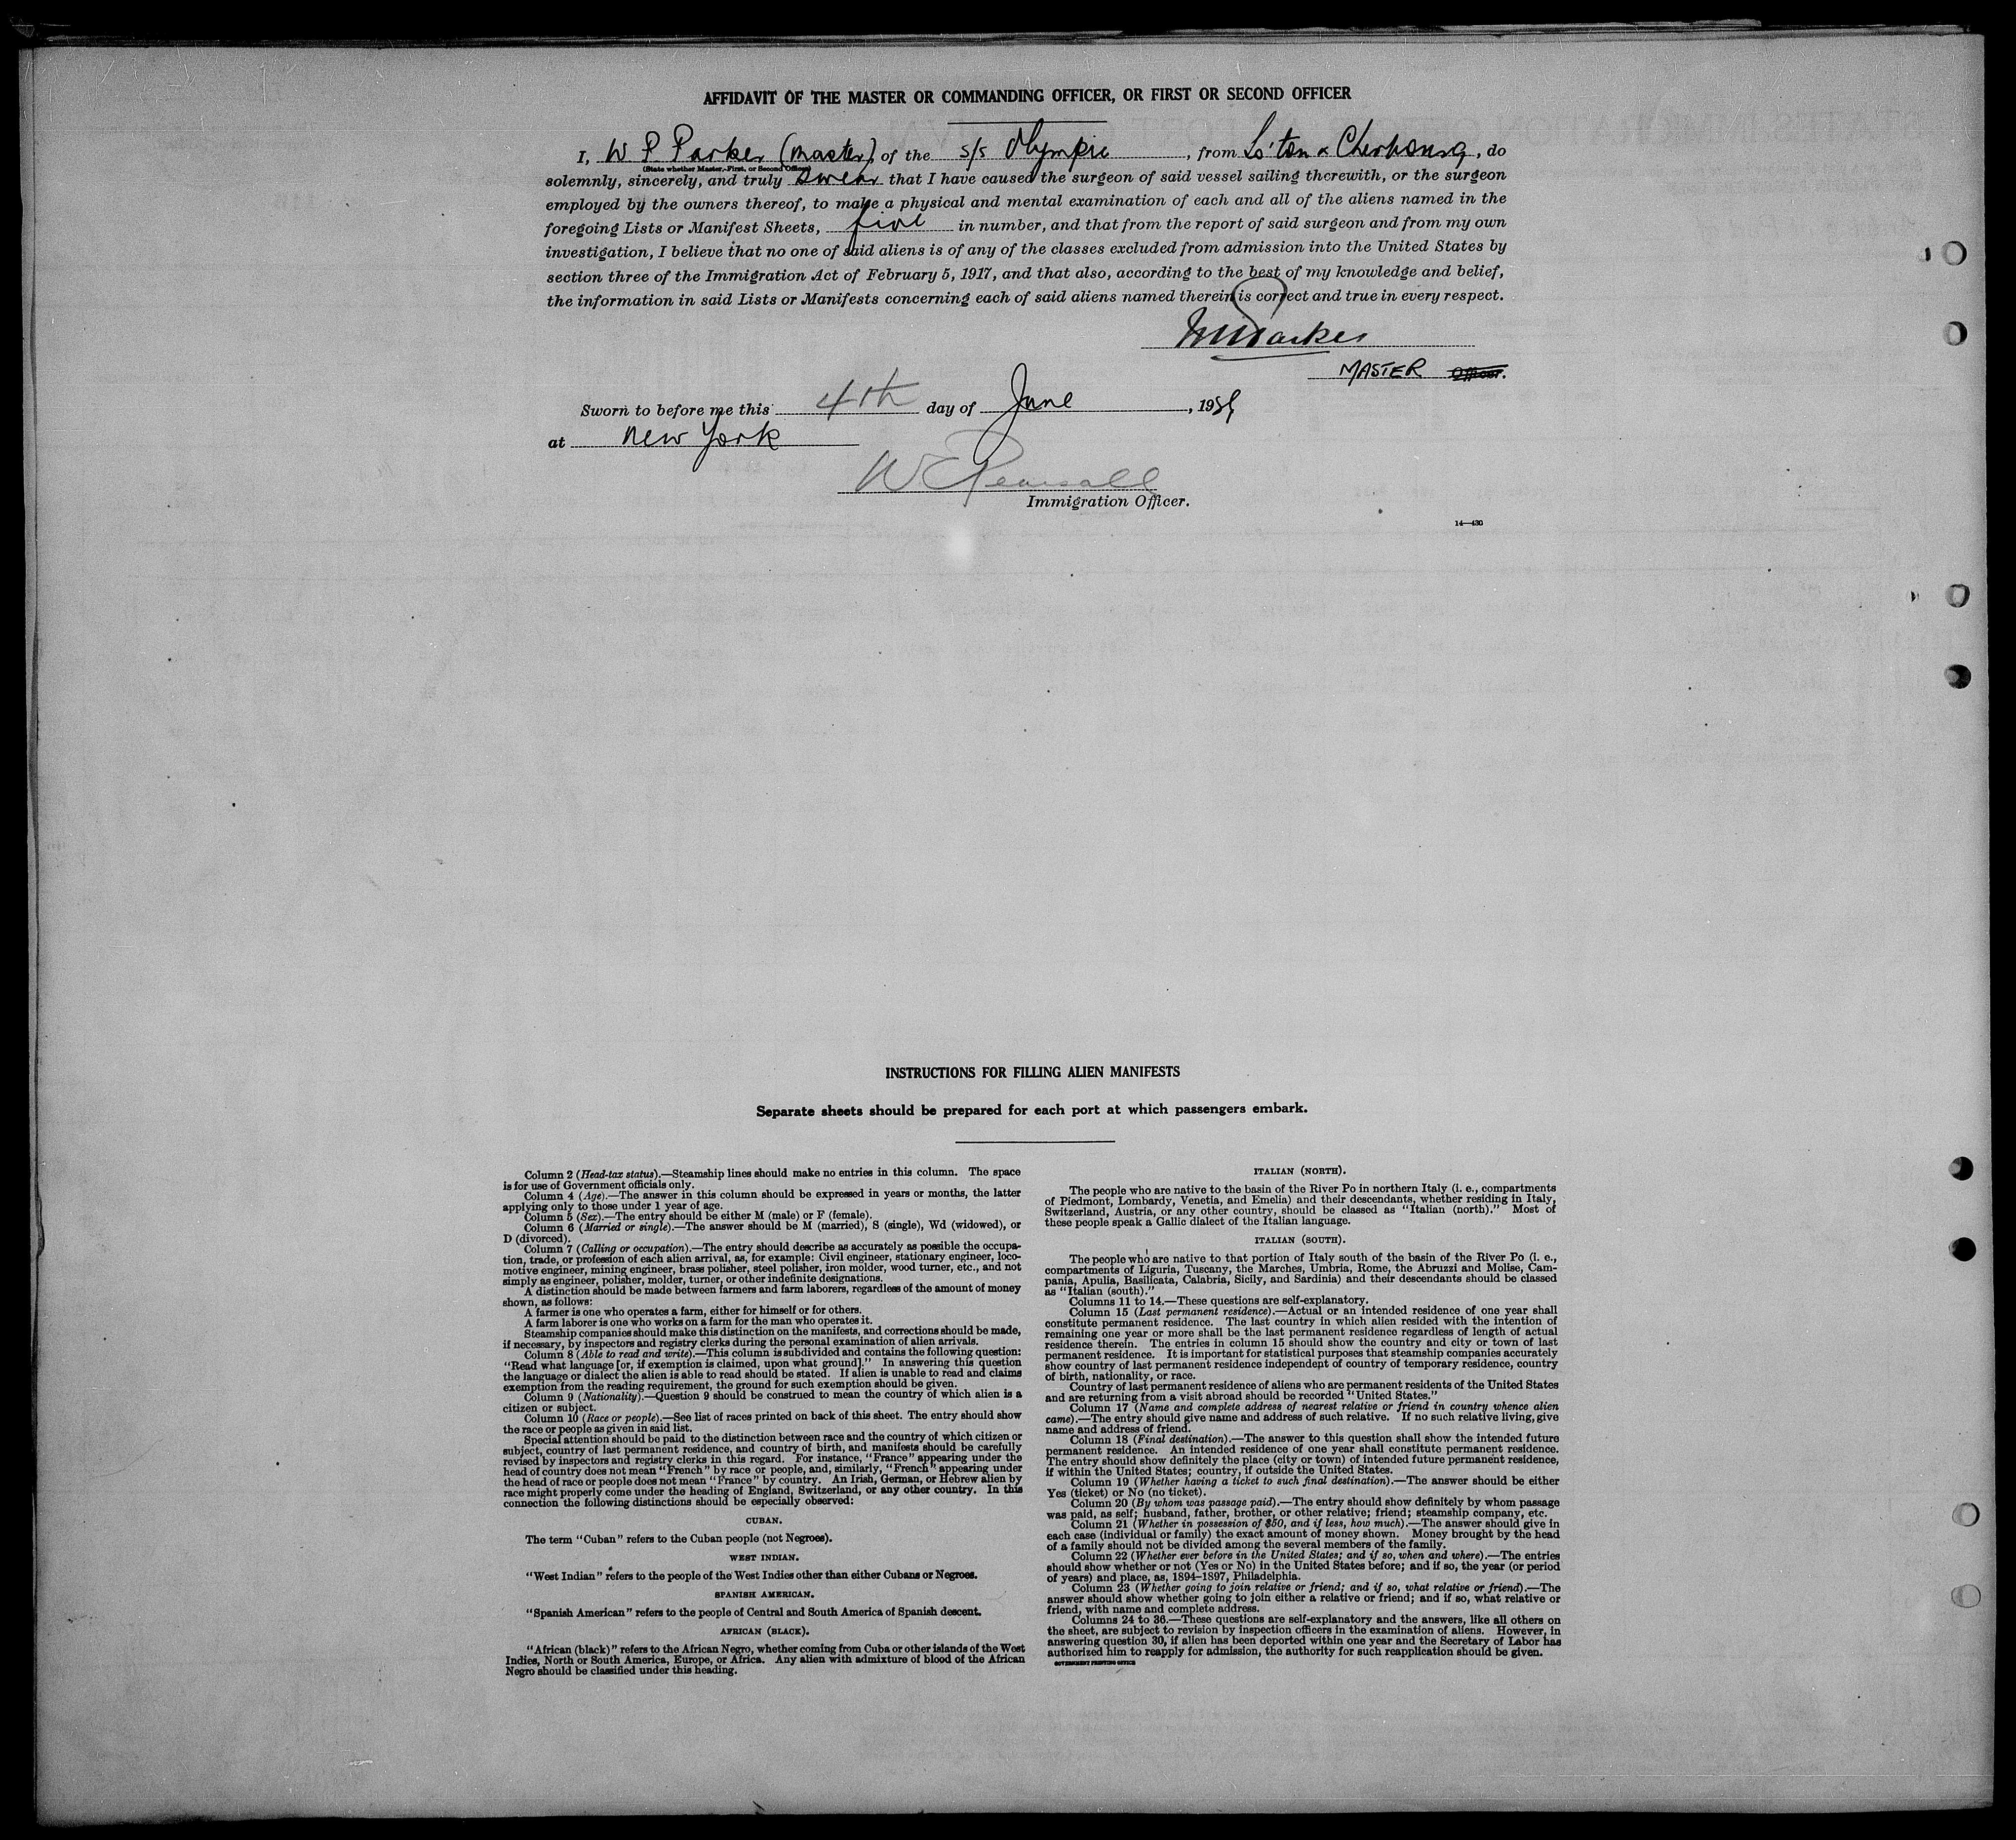 AFFIDAVIT OF THE MASTER OR COMMANDING OFFICER, OR FIRST OR SECOND OFFICER
I, W P Parker (Master), of the s/s Olympic, from So'ton & Cherbourg, do
(State whether Master, First, or Second Officer)
solemnly, sincerely, and truly swear that I have caused the surgeon of said vessel sailing therewith, or the surgeon
employed by the owners thereof, to make a physical and mental examination of each and all of the aliens named in the
foregoing Lists or Manifest Sheets, five in number, and that from the report of said surgeon and from my own
investigation, I believe that no one of said aliens is of any of the classes excluded from admission into the United States by
section three of the Immigration Act of February 5, 1917, and that also, according to the best of my knowledge and belief,
the information in said Lists or Manifests concerning each of said aliens named therein is correct and true in every respect.
Parker
MASTER Officer.
Sworn to before me this 4th day of June, 19
at New York
W E Pearsall
Immigration Officer.
14—430
INSTRUCTIONS FOR FILLING ALIEN MANIFESTS
Separate sheets should be prepared for each port at which passengers embark.
Column 2 (Head-tax status).—Steamship lines should make no entries in this column. The space
is for use of Government officials only.
Column 4 (Age).—The answer in this column should be expressed in years or months, the latter
applying only to those under 1 year of age.
Column 5 (Sex).—The entry should be either M (male) or F (female).
Column 6 (Married or single).—The answer should be M (married), S (single), Wd (widowed), or
D (divorced).
Column 7 (Calling or occupation).—The entry should describe as accurately as possible the occupa-
tion, trade, or profession of each alien arrival, as, for example: Civil engineer, stationary engineer, loco-
motive engineer, mining engineer, brass polisher, steel polisher, iron molder, wood turner, etc., and not
simply as engineer, polisher, molder, turner, or other indefinite designations.
A distinction should be made between farmers and farm laborers, regardless of the amount of money
shown, as follows:
A farmer is one who operates a farm, either for himself or for others.
A farm laborer is one who works on a farm for the man who operates it.
Steamship companies should make this distinction on the manifests, and corrections should be made,
if necessary, by inspectors and registry clerks during the personal examination of alien arrivals.
Column 8 (Able to read and write).—This column is subdivided and contains the following question:
"Read what language [or, if exemption is claimed, upon what ground]." In answering this question
the language or dialect the alien is able to read should be stated. If alien is unable to read and claims
exemption from the reading requirement, the ground for such exemption should be given.
Column 9 (Nationality).—Question 9 should be construed to mean the country of which alien is a
citizen or subject.
Column 10 (Race or people).—See list of races printed on back of this sheet. The entry should show
the race or people as given in said list.
Special attention should be paid to the distinction between race and the country of which citizen or
subject, country of last permanent residence, and country of birth, and manifests should be carefully
revised by inspectors and registry clerks in this regard. For instance, "France" appearing under the
head of country does not mean "French" by race or people, and, similarly, "French" appearing under
the head of race or people does not mean "France" by country. An Irish, German, or Hebrew alien by
race might properly come under the heading of England, Switzerland, or any other country. In this
connection the following distinctions should be especially observed:
CUBAN.
The term "Cuban" refers to the Cuban people (not Negroes).
WEST INDIAN.
"West Indian" refers to the people of the West Indies other than either Cubans or Negroes.
SPANISH AMERICAN.
"Spanish American" refers to the people of Central and South America of Spanish descent.
AFRICAN (BLACK).
"African (black)" refers to the African Negro, whether coming from Cuba or other islands of the West
Indies, North or South America, Europe, or Africa. Any alien with admixture of blood of the African
Negro should be classified under this heading.
ITALIAN (NORTH).
The people who are native to the basin of the River Po in northern Italy (i. e., compartments
of Piedmont, Lombardy, Venetia, and Emelia) and their descendants, whether residing in Italy,
Switzerland, Austria, or any other country, should be classed as "Italian (north)." Most of
these people speak a Gallic dialect of the Italian language.
ITALIAN (SOUTH).
The people who are native to that portion of Italy south of the basin of the River Po (i. e.,
compartments of Liguria, Tuscany, the Marches, Umbria, Rome, the Abruzzi and Molise, Cam-
pania, Apulia, Basilicata, Calabria, Sicily, and Sardinia) and their descendants should be classed
as "Italian (south)."
Columns 11 to 14.—These questions are self-explanatory.
Column 15 (Last permanent residence).—Actual or an intended residence of one year shall
constitute permanent residence. The last country in which alien resided with the intention of
remaining one year or more shall be the last permanent residence regardless of length of actual
residence therein. The entries in column 15 should show the country and city or town of last
permanent residence. It is important for statistical purposes that steamship companies accurately
show country of last permanent residence independent of country of temporary residence, country
of birth, nationality, or race.
Country of last permanent residence of aliens who are permanent residents of the United States
and are returning from a visit abroad should be recorded "United States."
Column 17 (Name and complete address of nearest relative or friend in country whence alien
came).—The entry should give name and address of such relative. If no such relative living, give
name and address of friend.
Column 18 (Final destination).—The answer to this question shall show the intended future
permanent residence. An intended residence of one year shall constitute permanent residence.
The entry should show definitely the place (city or town) of intended future permanent residence,
if within the United States; country, if outside the United States.
Column 19 (Whether having a ticket to such final destination).—The answer should be either
Yes (ticket) or No (no ticket).
Column 20 (By whom was passage paid).—The entry should show definitely by whom passage
was paid, as self; husband, father, brother, or other relative; friend; steamship company, etc.
Column 21 (Whether in possession of $50, and if less, how much).—The answer should give in
each case (individual or family) the exact amount of money shown. Money brought by the head
of a family should not be divided among the several members of the family.
Column 22 (Whether ever before in the United States; and if so, when and where).—The entries
should show whether or not (Yes or No) in the United States before; and if so, the year (or period
of years) and place, as, 1894-1897, Philadelphia.
Column 23 (Whether going to join relative or friend; and if so, what relative or friend).—The
answer should show whether going to join either a relative or friend; and if so, what relative or
friend, with name and complete address.
Columns 24 to 36.—These questions are self-explanatory and the answers, like all others on
the sheet, are subject to revision by inspection officers in the examination of aliens. However, in
answering question 30, if alien has been deported within one year and the Secretary of Labor has
authorized him to reapply for admission, the authority for such reapplication should be given.
GOVERNMENT PRINTING OFFICE